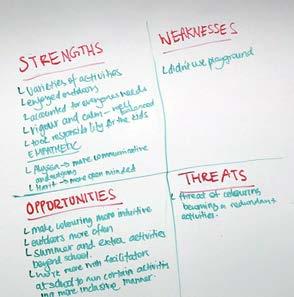 STRENGTHS
Varieties of activities
enjoyed outdoors
accounted for everyones needs
Rigour and calm - well balanced
took responsibility for the kids
EMPATHETIC
→ more communicative
→ more open minded
WEAKNESSES
didn't use playground
OPPORTUNITIES
make colouring more intuitive
outdoors more often
summer and extra activities
beyond school.
work more with facilitator
at school to run certain activities
in a more inclusive manner.
THREATS
threat of colouring
becoming a redundant
activities.